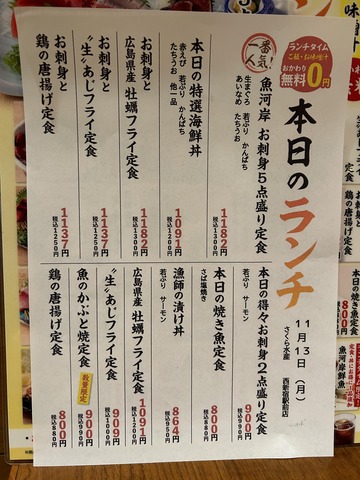 本日のランチ
11月13日(月)
さくら水産 西新宿駅前店
ランチタイム
ご飯・お味噌汁
おかわり
無料0円
一番人気!
魚河岸 お刺身5点盛り定食
生まぐろ 若ぶり かんぱち
あいなめ たちうお
1182円
税込1300円
本日の特選海鮮丼
赤えび 若ぶり かんぱち
たちうお 他一品
1091円
税込1200円
お刺身と
広島県産 牡蠣フライ定食
1182円
税込1300円
お刺身と
"生"あじフライ定食
1137円
税込1250円
お刺身と
鶏の唐揚げ定食
1137円
税込1250円
本日の得々お刺身2点盛り定食
若ぶり サーモン
900円
税込990円
本日の焼き魚定食
さば塩焼き
800円
税込880円
漁師の漬け丼
若ぶり サーモン
864円
税込950円
広島県産 牡蠣フライ定食
1091円
税込1200円
"生"あじフライ定食
909円
税込1000円
魚のかぶと焼定食
数量限定
900円
税込990円
鶏の唐揚げ定食
800円
税込880円